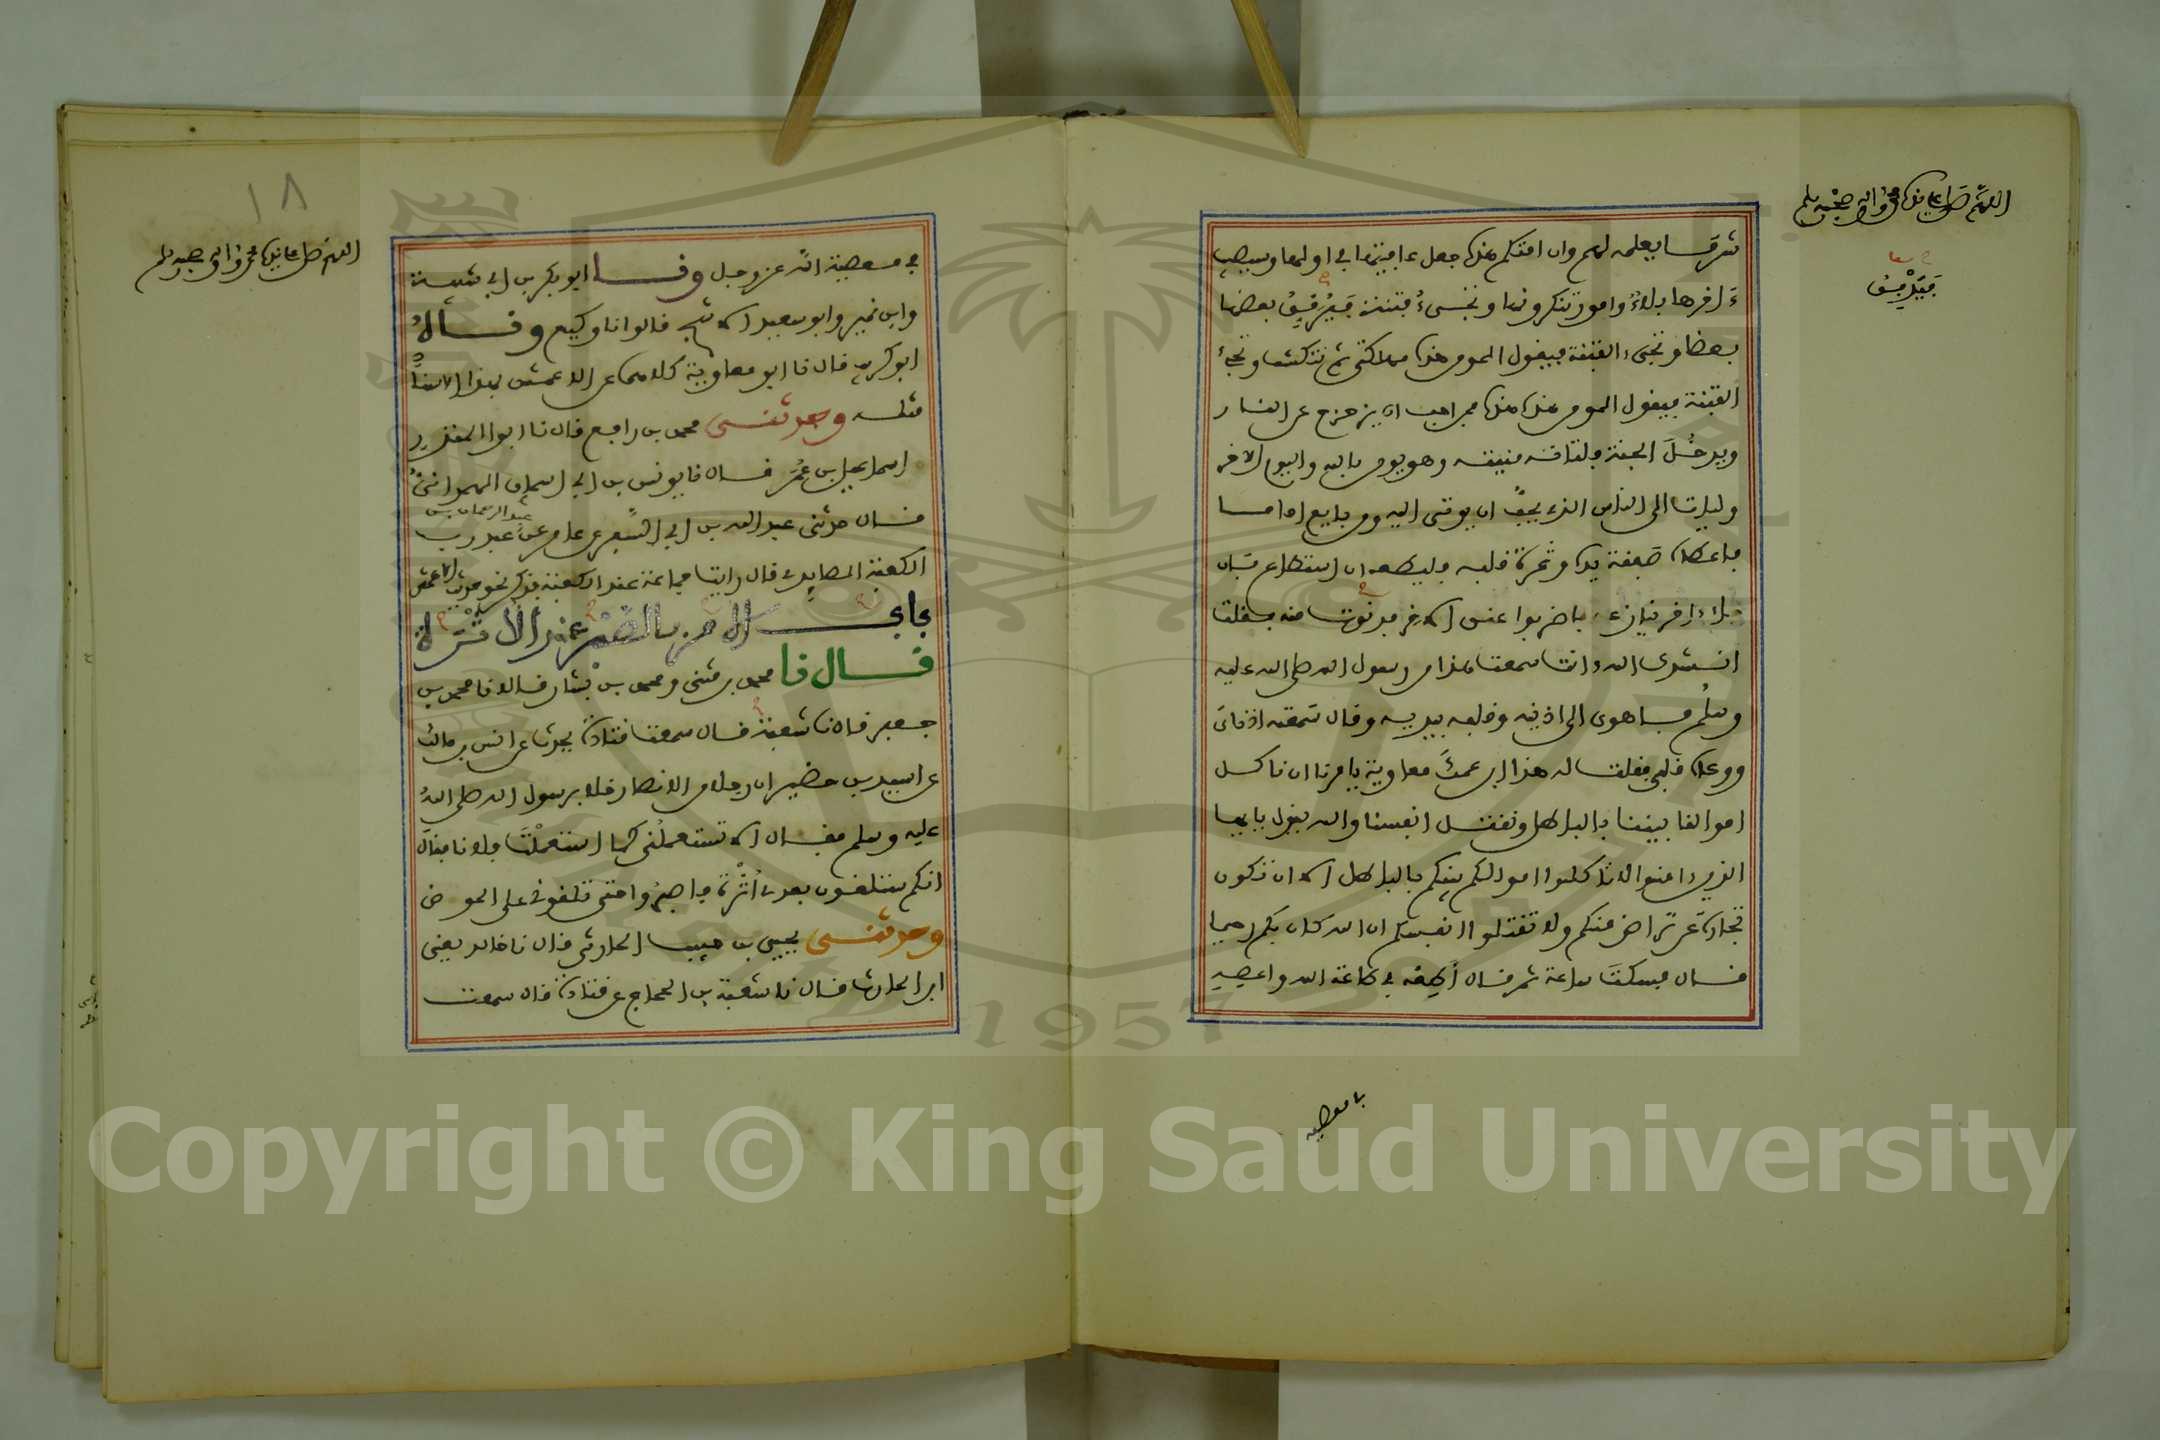 اللهم صل على سيدنا محمد واله وصحبه وسلم
فيدفق
شر ما يعلمه لهم وان امتكم هذه جعل عافيتها في اولها وسيصيب
ءاخرها بلاء وامور تنكرونها وتجيء فتنة فيرفق بعضها
بعضا وتجيء الفتنة فيقول المومن هذه مهلكتي ثم تنكشف وتجيء
الفتنة فيقول المومن هذه هذه فمن احب ان يزحزح عن النار
ويدخل الجنة فلتاته منيته وهو يومن بالله واليوم الاخر
وليات الى الناس الذي يحب ان يوتى اليه ومن بايع اماما
فاعطاه صفقة يده وثمرة قلبه فليطعه ان استطاع فان
جاء اخر ينازعه فاضربوا عنق الاخر فدنوت منه فقلت
انشدك الله ءانت سمعت هذا من رسول الله صلى الله عليه
وسلم فاهوى الى اذنيه وقلبه بيديه وقال سمعته اذناي
ووعاه قلبي فقلت له هذا ابن عمك معاوية يامرنا ان ناكل
اموالنا بيننا بالباطل ونقتل انفسنا والله يقول يايها
الذين ءامنوا لا تاكلوا اموالكم بينكم بالباطل الا ان تكون
تجارة عن تراض منكم ولا تقتلوا انفسكم ان الله كان بكم رحيما
قال فسكت ساعة ثم قال اطعه في طاعة الله واعصه
في معصية
١٨
اللهم صل على سيدنا محمد واله وصحبه وسلم
في معصية الله عز وجل ونا ابو بكر بن ابي شيبة
وابن نمير وابو سعيد الاشج قالوا نا وكيع ونا
ابو كريب قال نا ابو معاوية كلاهما عن الاعمش بهذا الاسناد
مثله وحدثني محمد بن رافع قال نا ابو المنذر
اسماعيل بن عمر قال نا يونس بن ابي اسحاق الهمداني
قال حدثني عبد الله بن ابي السفر عن عامر عن عبد الرحمان بن عبد رب
الكعبة الصايدي قال رايت جماعة عند الكعبة فذكر نحو حديث الاعمش
باب الامر بالصبر عند الاثرة
قال نا محمد بن مثنى ومحمد بن بشار قالا نا محمد بن
جعفر قال نا شعبة قال سمعت قتادة يحدث عن انس بن مالك
عن اسيد بن حضير ان رجلا من الانصار خلا برسول الله صلى الله
عليه وسلم فقال الا تستعملني كما استعملت فلانا فقال
انكم ستلقون بعدي اثرة فاصبروا حتى تلقوني على الحوض
وحدثني يحيى بن حبيب الحارثي قال نا خالد يعني
ابن الحارث قال نا شعبة بن الحجاج عن قتادة قال سمعت
1957
Copyright © King Saud University